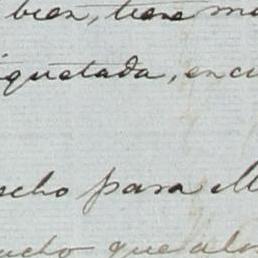 bien, tiene m
iquetada, en cu
echo para M
ucho que al